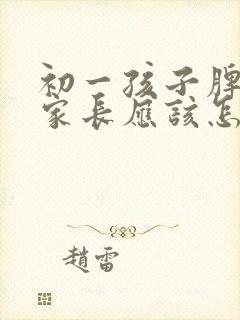 初一孩子脾
家長應該怎
趙雷